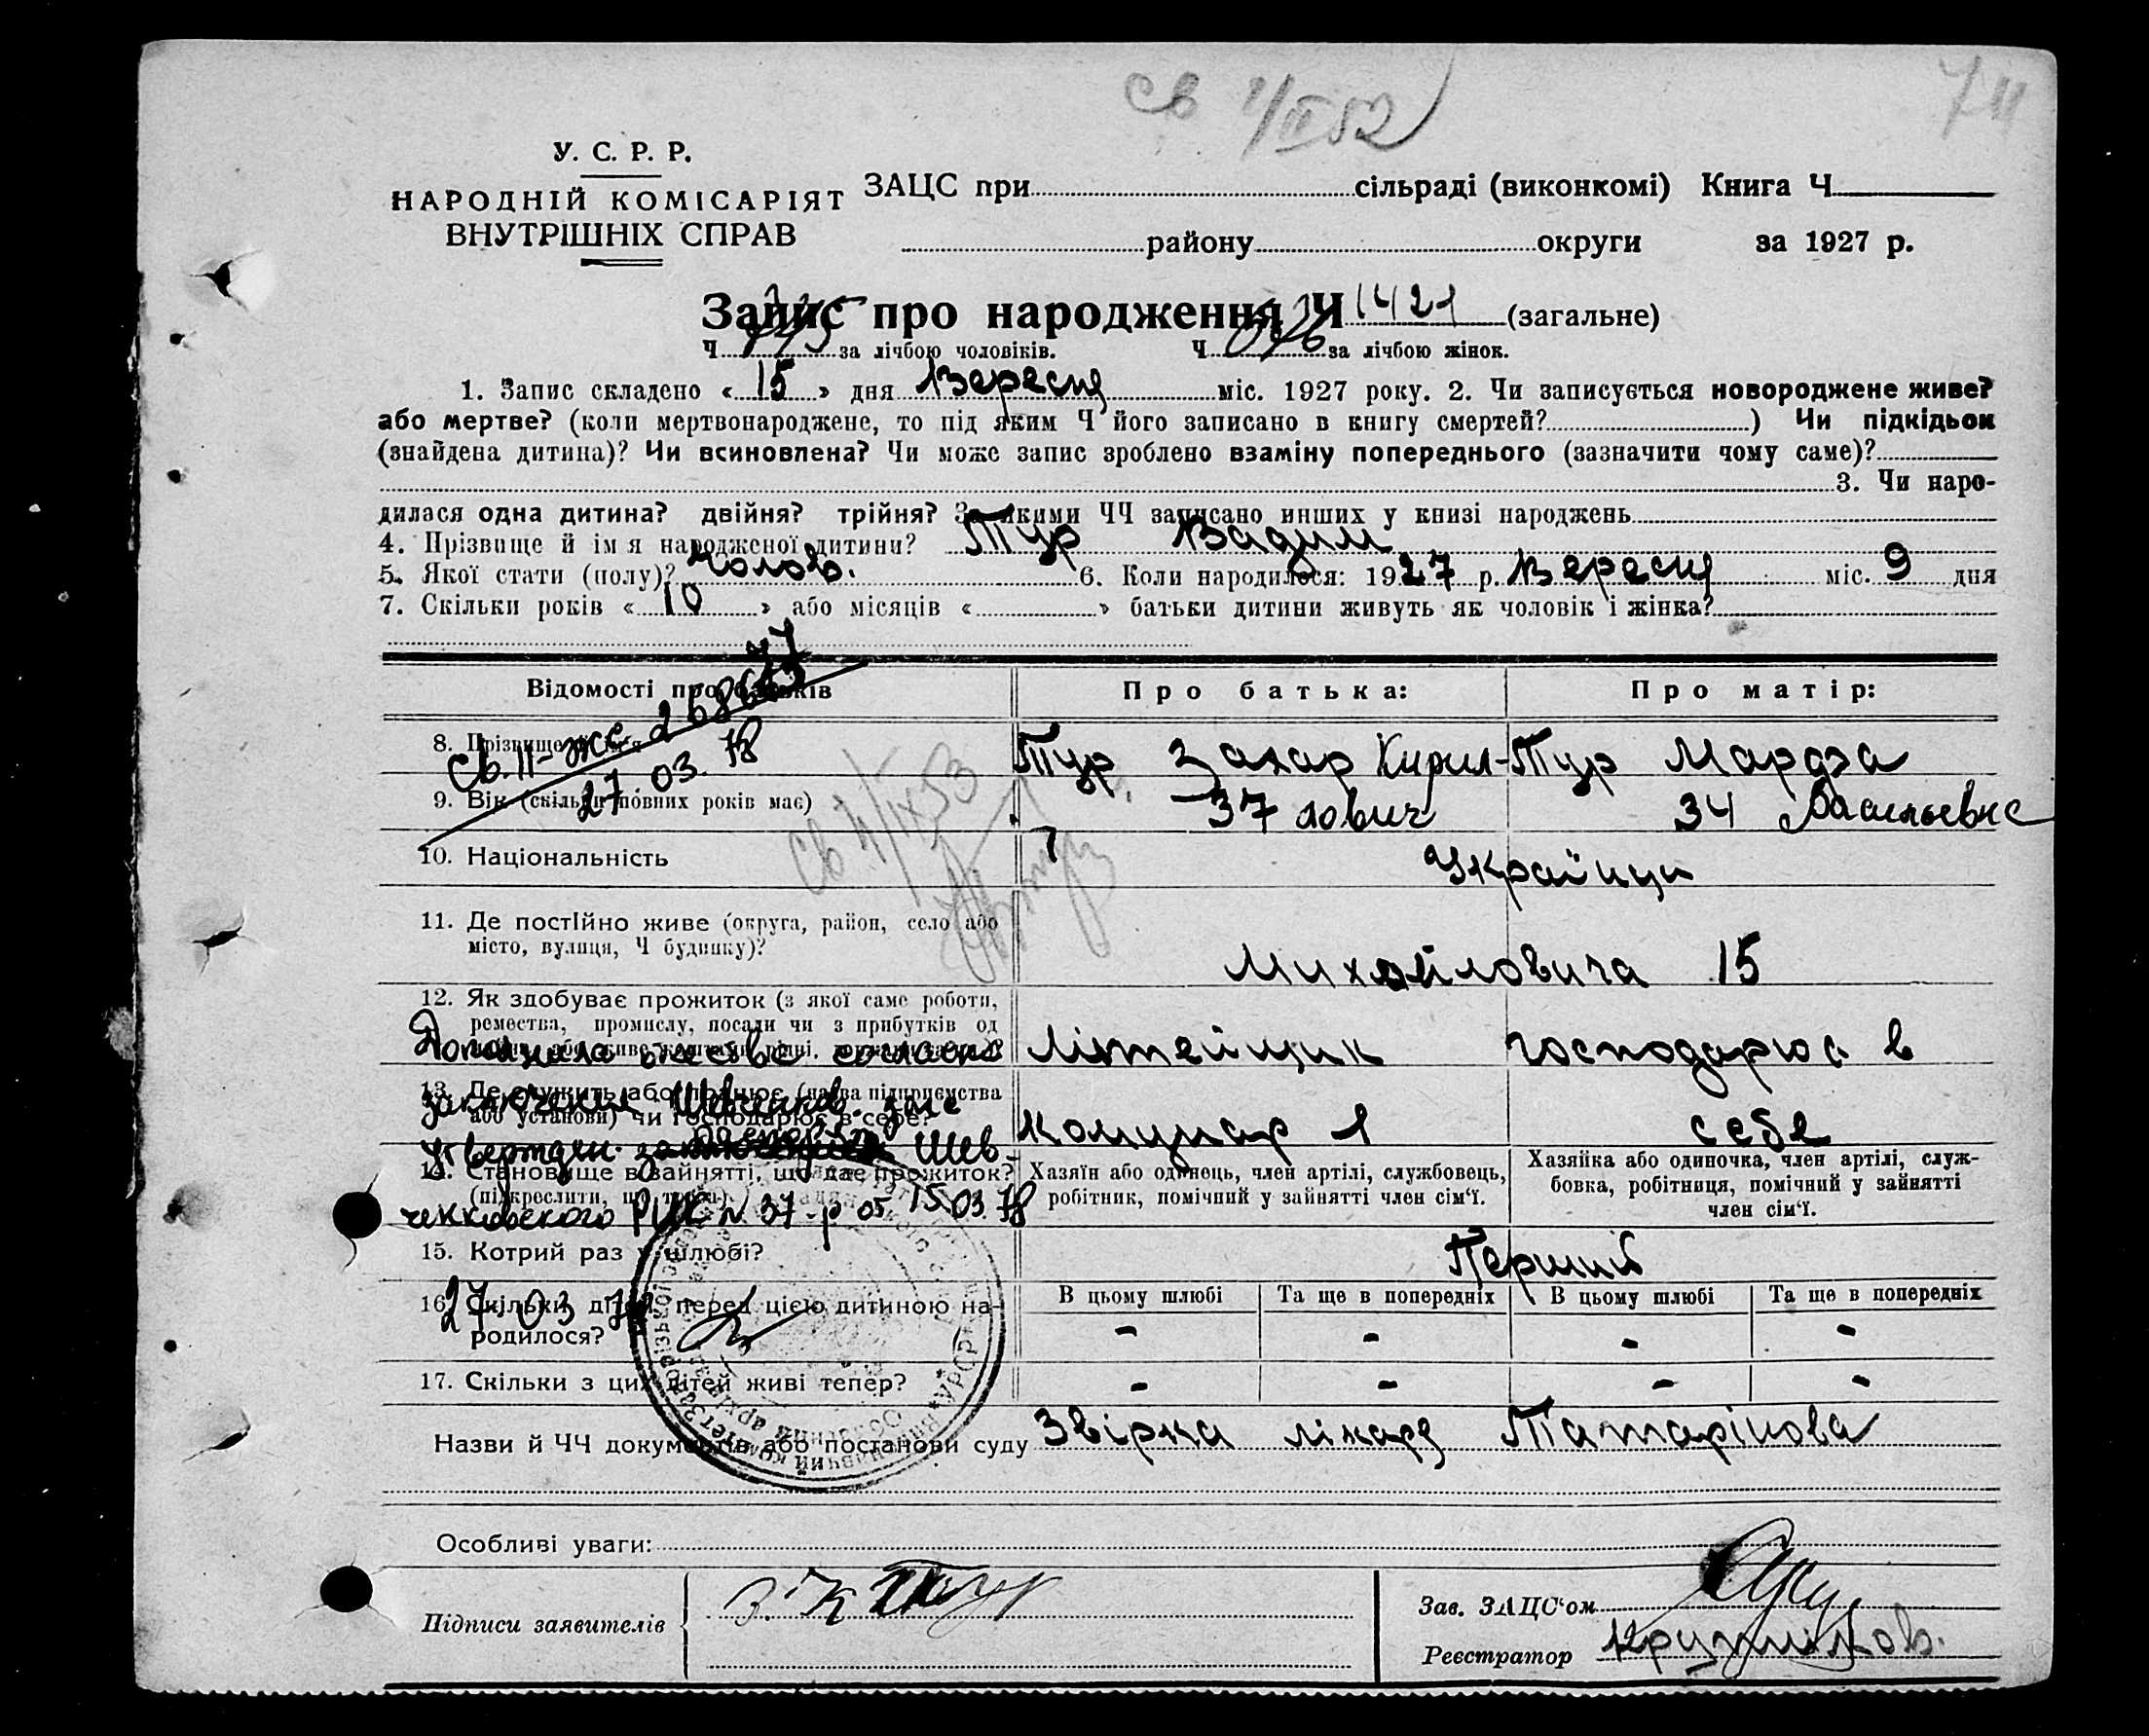 Св 1/IX 52
У. С. Р. Р.
НАРОДНІЙ КОМІСАРІЯТ
ВНУТРІШНІХ СПРАВ
ЗАЦС при сільраді (виконкомі) Книга Ч
району округи за 1927 р.
Запис про народження Ч 1421 (загальне)
Ч за лічбою чоловіків. Ч за лічбою жінок.
1. Запис складено « 15 » дня Вересня міс. 1927 року. 2. Чи записується новороджене живе?
або мертве? (коли мертвонароджене, то під яким Ч його записано в книгу смертей? ) Чи підкідьок
(знайдена дитина)? Чи всиновлена? Чи може запис зроблено взаміну попереднього (зазначити чому саме)?
3. Чи наро-
дилася одна дитина? двійня? трійня? За якими ЧЧ записано инших у книзі народжень
4. Прізвище й ім я народженої дитини? Тур Вадим
5. Якої стати (полу)? Чолов. 6. Коли народилося: 1927 р. Вересня міс. 9 дня
7. Скільки років « 10 » або місяців « » батьки дитини живуть як чоловік і жінка?
Відомості про батьків Про батька: Про матір:
Св. II-жс
27 03. 78
8. Прізвище й ім'я Тур Захар Кирил- Тур Марфа
9. Вік (скільки повних років має) 37 лович 34 Васильевне
Св 4/IX 53
10. Національність Українци
11. Де постійно живе (округа, район, село або
місто, вулиця, Ч будинку)? Михайловича 15
12. Як здобуває прожиток (з якої саме роботи,
ремества, промислу, посади чи з прибутків од
Літейщик господарює в
Дополнено отчество согласно
13. Де служить або працює (назва підприємства
або установи) чи господарює в себе? Комунар 1 себе
заключения Шевченков. загс
утвержден. Шев-
14. Становище в зайнятті, що дає прожиток?
(підкреслити, що треба). Хазяїн або одинець, член артілі, службовець,
робітник, помічний у зайнятті член сім'ї.
Хазяйка або одиночка, член артілі, служ-
бовка, робітниця, помічний у зайнятті
член сім'ї.
ченковского РИК № 37-р от 15.03.78
15. Котрий раз у шлюбі? Перший
27.03 78
16. Скільки дітей перед цією дитиною на-
родилося? В цьому шлюбі Та ще в попередніх В цьому шлюбі Та ще в попередніх
- - - -
17. Скільки з цих дітей живі тепер? - - - -
Назви й ЧЧ документів або постанови суду Звірка лікаря Татарінова
Особливі уваги:
Підписи заявителів З. К Тур
Зав. ЗАЦС'ом
Реєстратор